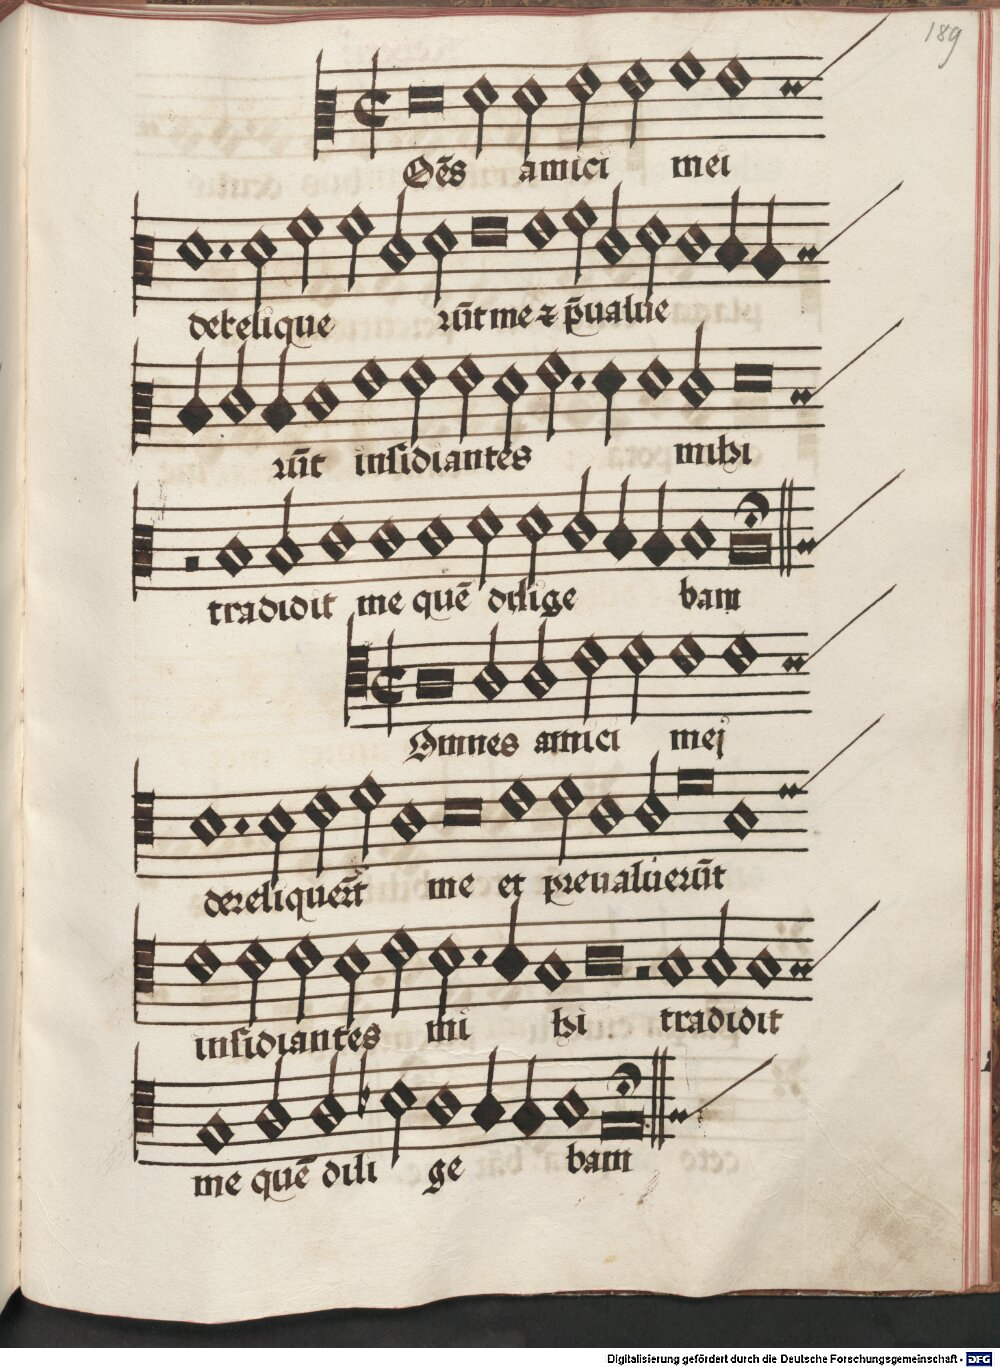 189
Oēs amici mei
dereliquerūt me ⁊ p̄ualue
rūt insidiantes mihi
tradidit me quē dilige bam
Omnes amici mej
dereliquerūt me et preualuerūt
insidiantes mi hi tradidit
me quē dili ge bam
Digitalisierung gefördert durch die Deutsche Forschungsgemeinschaft - DFG